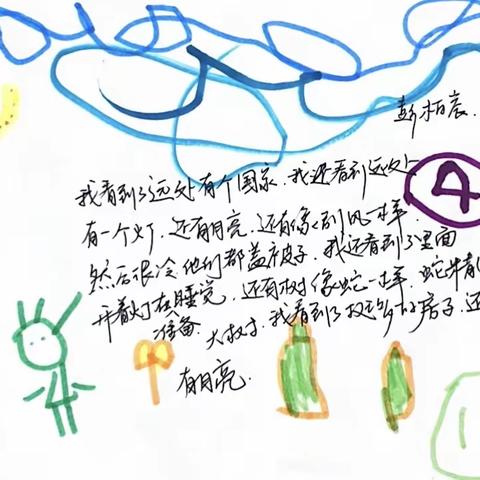 彭柏宸.
我看到了远处有个国家.我还看到远处
4
有一个灯.还有月亮.还有像刮风一样.
然后很冷他们都盖被子.我还看到了里面
开着灯在睡觉.还有树像蛇一样.蛇
准备 我看到了好多的房子.还
有月亮.